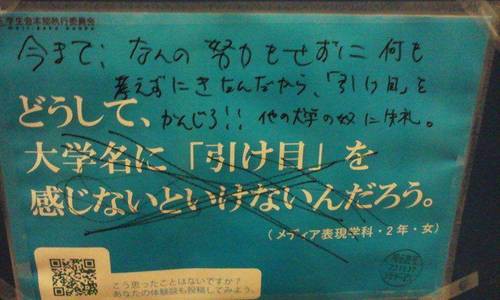 学生会本部執行委員会
今まで、なんの努力もせずに何も
考えずにきたんだから、「引け目」を
かんじろ!! 他の大学の奴に失礼。
どうして、
大学名に「引け目」を
感じないといけないんだろう。
(メディア表現学科・2年・女)
こう思ったことはないですか?
あなたの体験談も投稿してみよう。